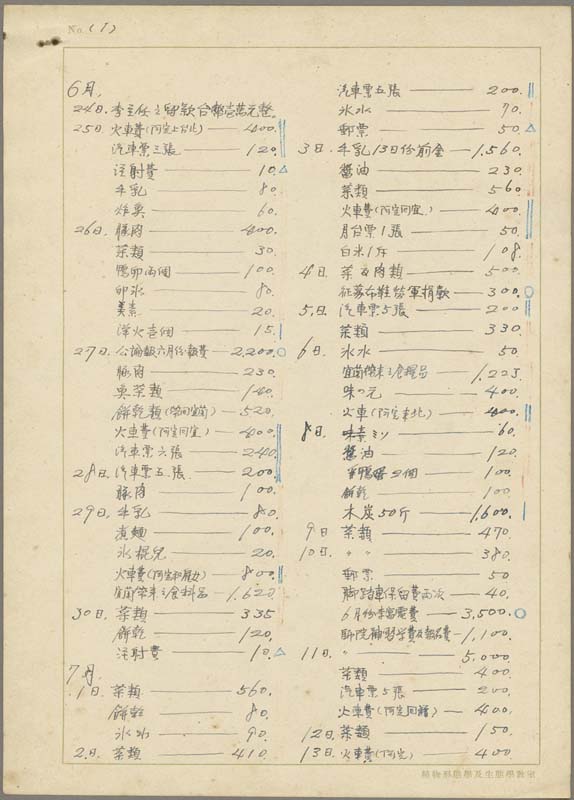 No. (1)
6月.
24日. 李主任之留款台幣壹萬元整.
25日 火車費(阿宝上台北) 400.
汽車票三張 120.
注射費 10.
牛乳 80.
炸棗 60.
26日. 豚肉 400.
菜類 30.
鴨卵兩個 100.
卵水 80.
美素 20.
洋火壹個 15.
27日. 公論報六月份報費 2,200.
豚肉 230.
菜類 140.
餅乾類(帶回宜蘭) 520.
火車費(阿宝回宜) 400.
汽車票六張 240.
28日. 汽車票五張 200.
豚肉 100.
29日. 牛乳 80.
滷麵 100.
氷棍兒 20.
火車費(阿宝和) 800.
宜蘭帶來之食料品 1,620.
30日 菜類 335
餅乾 120.
注射費 10.
7月
1日. 菜類 560.
餅乾 80.
氷水 90.
2日. 菜類 410.
汽車票五張 200.
氷水 70.
郵票 50.
3日. 牛乳13日份前金 1,560.
醬油 230.
菜類 560
火車費(阿宝回宜.) 400.
月台票1張 50.
白米1斤 108.
4日. 菜及肉類 500.
征募布鞋勞軍捐款 300.
5日. 汽車票5張 200
菜類 330.
6日 氷水 50.
宜蘭帶來之食糧品 1,223.
味の元 400.
火車(阿宝來北) 400.
8日. 味素ミソ 60.
醬油 120.
鴨蛋2個 100.
餅乾 100.
木炭50斤 1,600.
9日 菜類 470.
10日. 〃 〃 380.
郵票 50
脚踏車保留費兩次 40.
6月份電費 3,500.
師院補習学費及報名費 1,100.
11日 〃 5,000
菜類 400.
汽車票5張 200.
火車費(阿宝回) 400.
12日 菜類 150.
13日 火車費(阿宝) 400
植物形態學及生態學教室